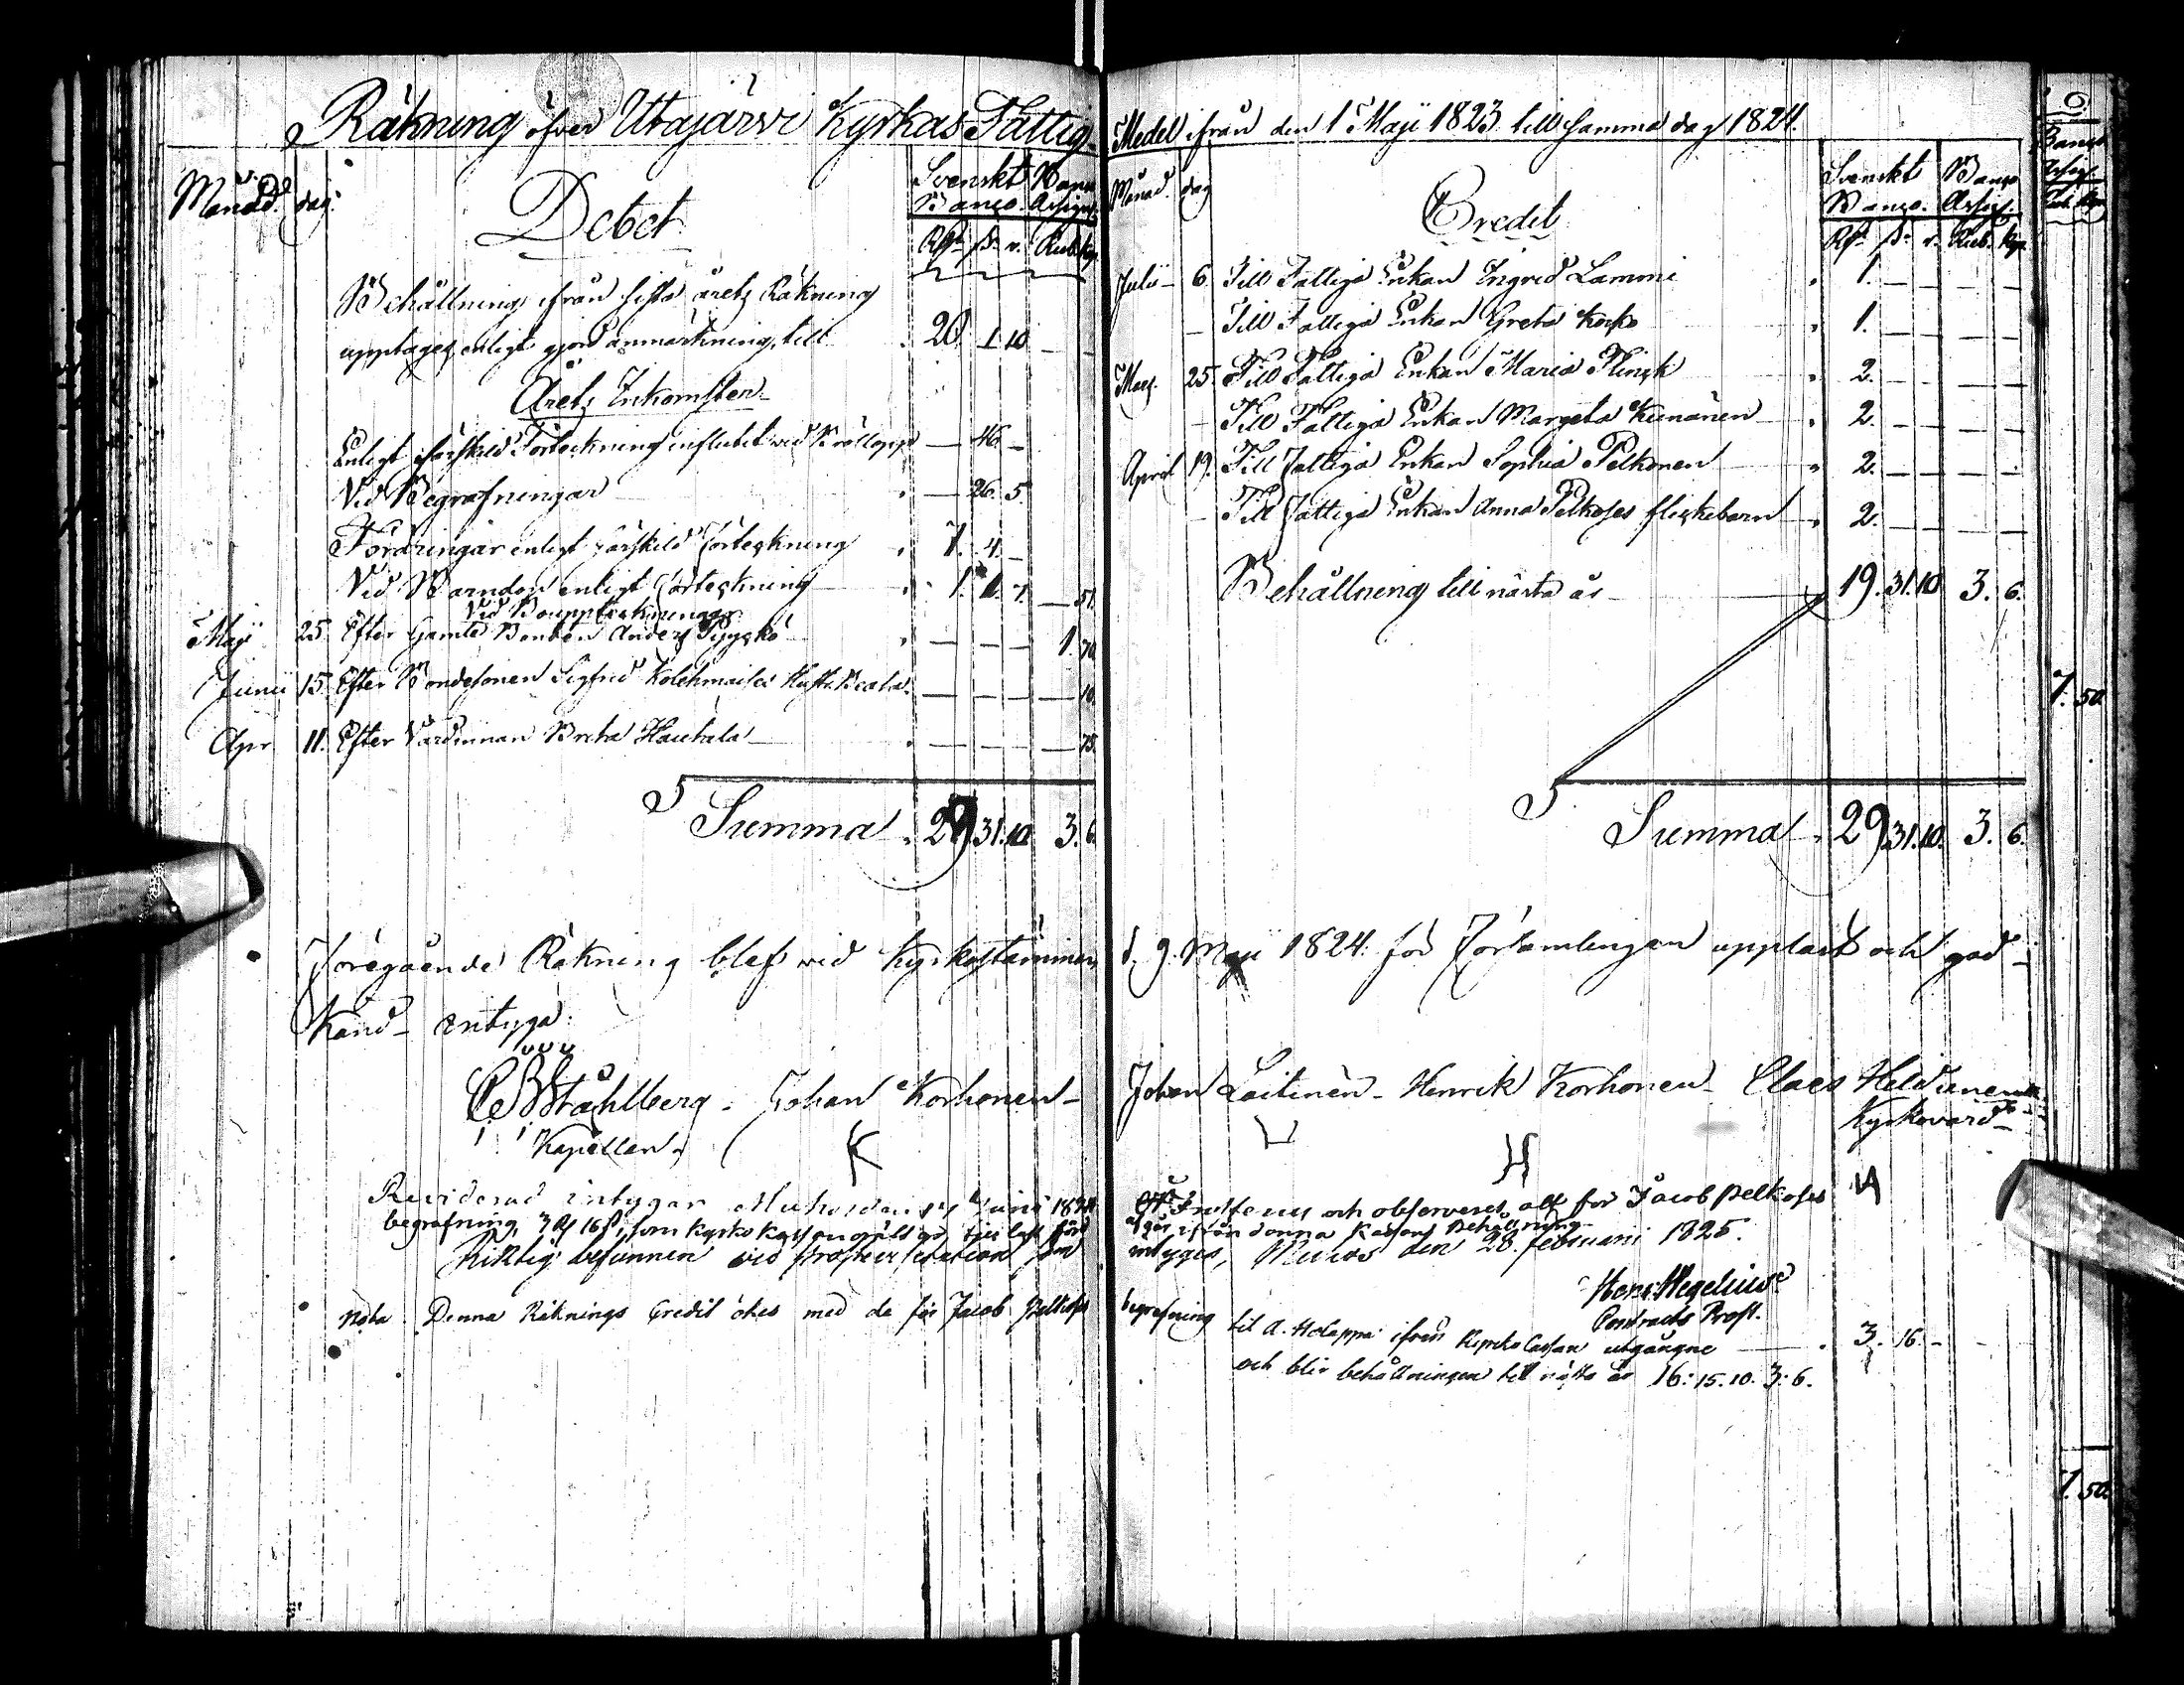 Räkning öfver Utajärvi Kyrkas Fattig
Månad. dag.
Debet
Svenskt Banco. Banco Assign.
Rdr. sk. r. Rub. kp.
Behållning ifrån sista årets Räkning
upptages enligt gjord anmärkning, till 20. 1. 10 — —
Årets Inkomster
Enligt särskild Förteckning influtit vid Bröllopp — 46. —
Vid Begrafningar — 26. 5.
Fordringar enligt särskild förteckning 7. 4. —
Vid Barndop enligt förteckning 1. 1. 7. — 51.
Vid Bouppteckningar
Maji 25. Efter Gamle Bonden Anders — — — 1. 70
Junii 15. Efter Bondesonen Sigfrid Kolehmaises Hustr. Beata — — — — 10.
Apr 11. Efter Värdinnan Breta Hautala — — — — 75.
Summa 29. 31. 10. 3. 6.
Föregående Räkning blef vid Kyrkostämman
känd — intyga:
Ståhlberg. Johan Korhonen —
Kapellan. K
Reviderad intygar Muhos den Junii 1824
begrafning, 3 R 16 s, som kyrko
Riktig befunnen vid
Nota. Denna Räknings Credit ökes med de för Jacob Pelkoses
Medel ifrån den 1 Maji 1823 till samma dag 1824.
Månad. dag
Credit
Svenskt Banco. Banco Assig.
Rdr. sk. r. Rub. kp.
Julii 6. Till Fattiga Enkan Ingrid Lammi 1. — — — —
— Till Fattiga Enkan Greta Korko 1. — — — —
Mars. 25. Till Fattiga Enkan Maria Flinck 2. — — — —
— Till Fattiga Enkan Margeta Keinänen 2. — — — —
April 19. Till Fattiga Enkan Sophia Pelkonen 2. — — — —
— Till Fattiga Enkan Anna Pelkoses flickebarn 2. — — — —
Behållning till nästa år 19. 31. 10 3. 6.
Summa 29. 31. 10. 3. 6.
d. 9. Maji 1824. för Församlingen uppläst och god-
Johan Laitinen — Henrik Korhonen — Claes
Kyrkovärd
H
och observeres att for Jacob Pelkoses
afgår ifrån denna Kassans Behållning
intyges, Muhos den 28. februarii 1825.
Hegelius
Contracts Prost.
begrafning til A. Holappa ifrån Kyrko Cassan utgångne 3. 16. —
och blir behållningen till nästa år 16: 15. 10. 3: 6.
6
Banco
Assig.
Rub. Kop.
7. 50
7. 50